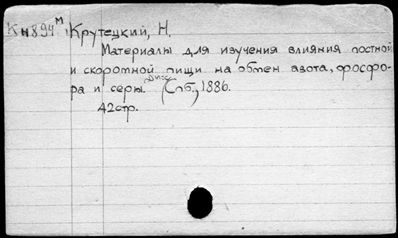 Кн894м Крутецкий, Н.
Материалы для изучения влияния постной
и скоромной пищи на обмен азота, фосфо-
ра и серы. Дисс. (Спб., 1886.
42стр.